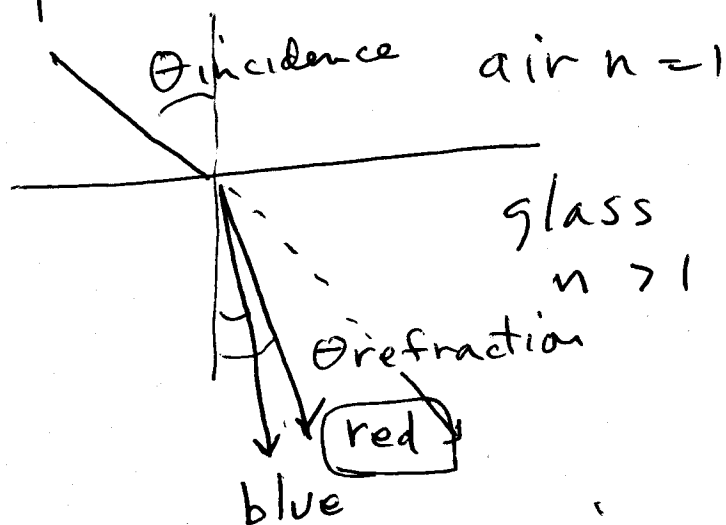 θincidence
air n = 1
glass
n > 1
θrefraction
red
blue